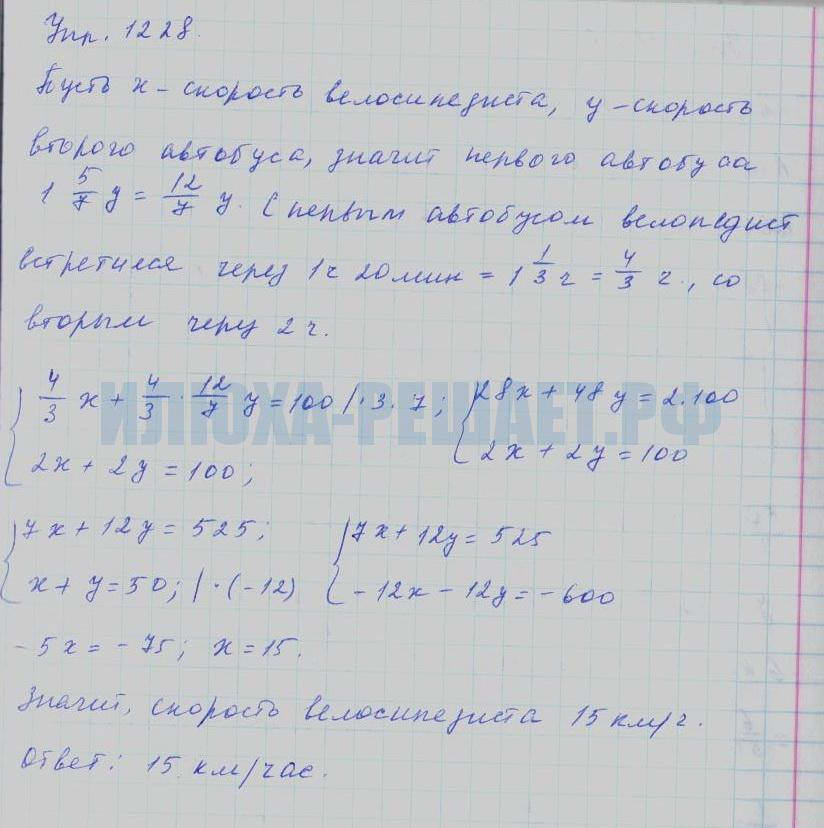 Упр. 1228.
Пусть x - скорость велосипедиста, y - скорость
второго автобуса, значит первого автобуса
1 5/7 y = 12/7 y. С первым автобусом велопедист
встретился через 1ч 20мин = 1 1/3 ч = 4/3 ч., со
вторым через 2 ч.
4/3 x + 4/3 · 12/7 y = 100 | · 3 · 7; 28x + 48y = 2.100
2x + 2y = 100; 2x + 2y = 100
ИЛЮХА-РЕШАЕТ.РФ
7x + 12y = 525; 7x + 12y = 525
x + y = 50; | · (-12) -12x - 12y = -600
-5x = -75; x = 15.
Значит, скорость велосипедиста 15 км/ч.
Ответ: 15 км/час.